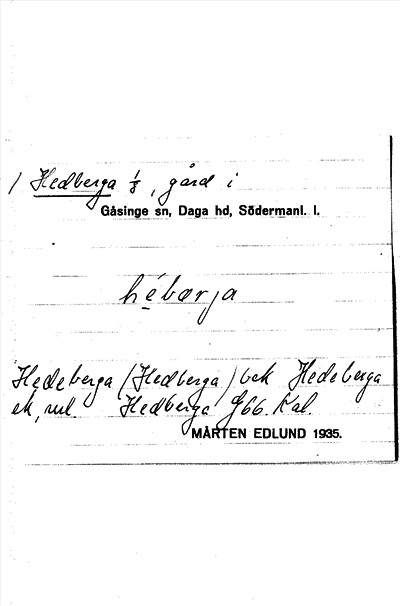 / Hedberga 1/8, gård i
Gåsinge sn, Daga hd, Södermanl. l.
hébærja
Hedeberga (Hedberga) bek Hedeberga
ek, rul Hedberga G66. Kal.
MÅRTEN EDLUND 1935.